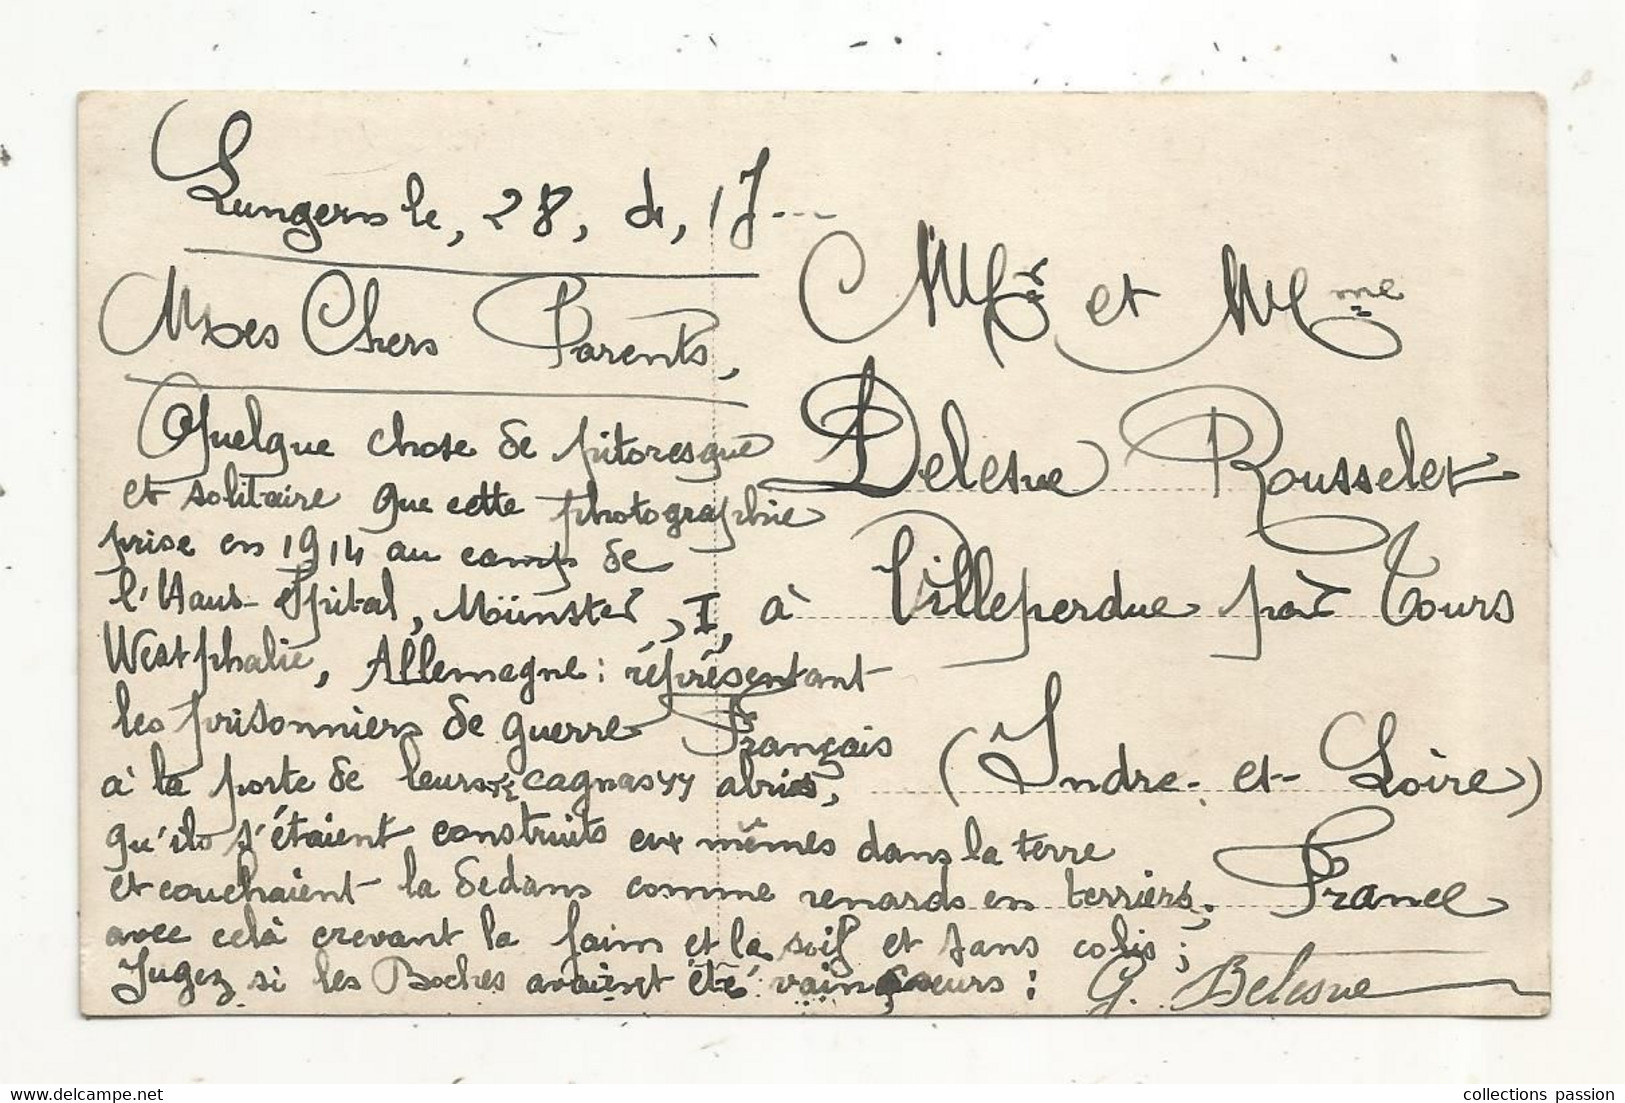 Lungern le, 28, d, 17...
Mes Chers Parents,
Quelque chose de pitoresque
et solitaire que cette photographie
prise en 1914 au camp de
l'Haus-Spital, Münster, I,
Westphalie, Allemagne: réprésentant
les prisonniers de guerre Français
à la porte de leurs "cagnas" abris,
qu'ils s'étaient construits eux mêmes dans la terre
et couchaient la dedans comme renards en terriers,
avec celà crevant la faim et la soif et sans colis;
Jugez si les Boches avaient été vainqueurs:
G. Delesve
Mr et Mme
Delesve Rousselet
à Villeperdue par Tours
(Indre-et-Loire)
France
collections passion